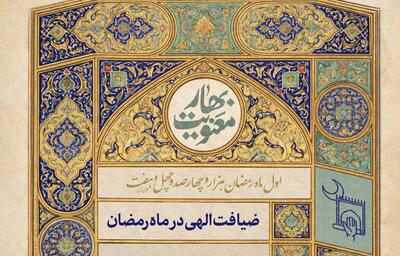 بهار
معنویت
اول ماه رمضان هزار و چهارصد و چهل و هفت
ضیافت الهی در ماه رمضان